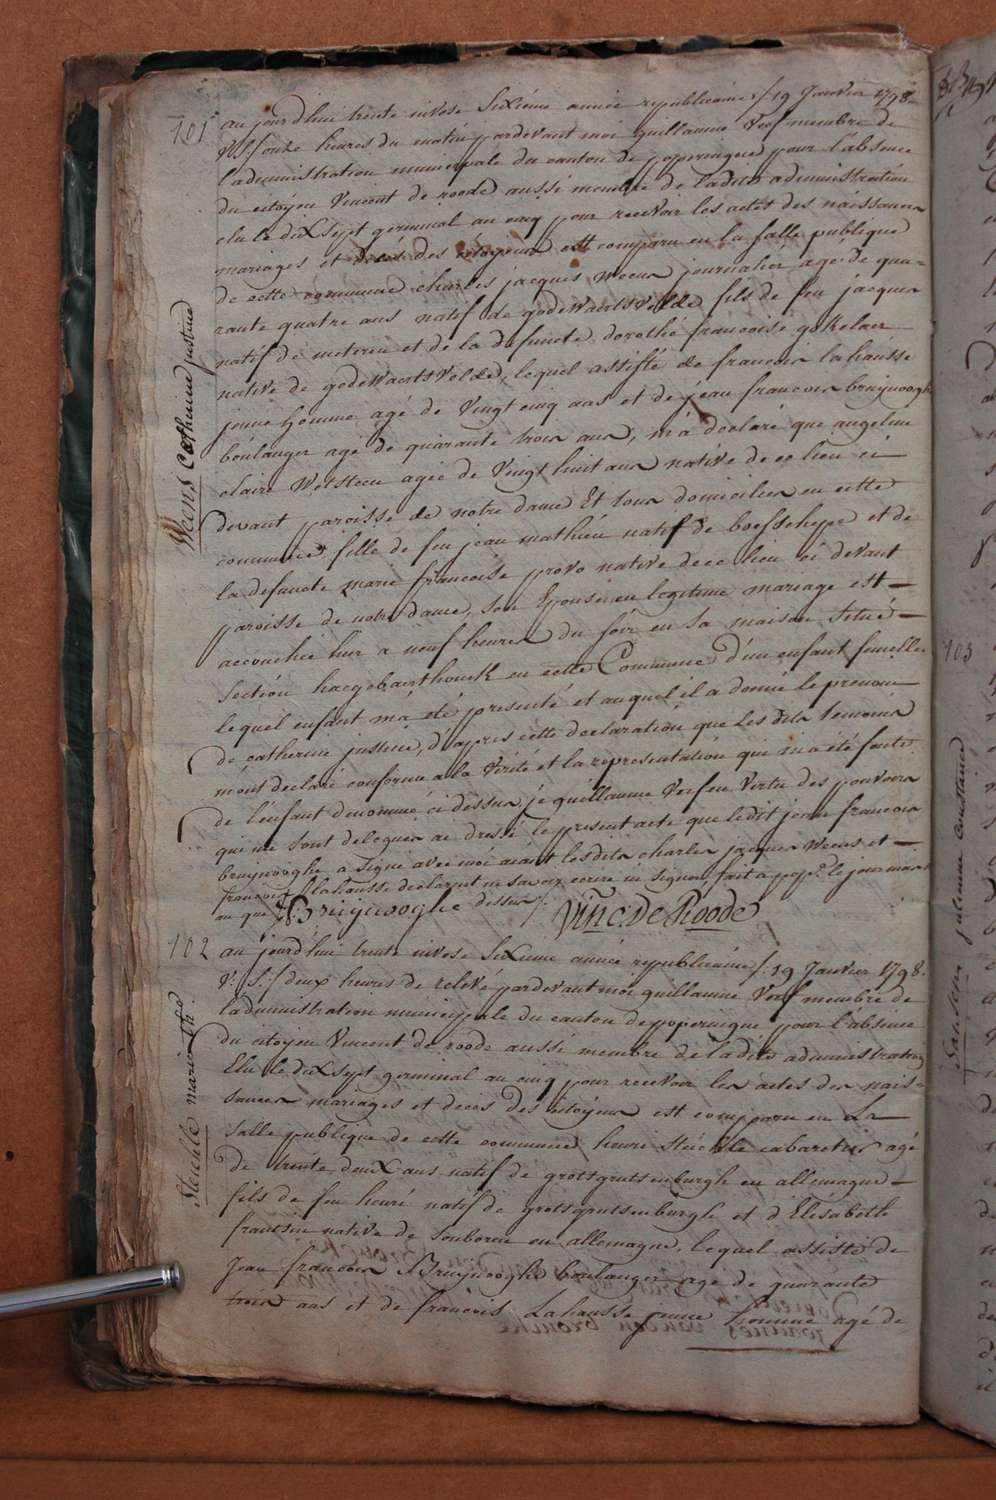 101
au jourd'hui trente nivose Sixieme année republicaine /: 19 Janvier 1798
V: S:/ onze heures du matin pardevant moi guillaume Verf membre de
l'administration municipale du canton de poperingue pour l'absence
du citoyen Vincent de roode aussi membre de ladite administration
elu le dix Sept germinal an cinq pour recevoir les actes des naissances
mariages et decés des citoyens est comparu en la salle publique
de cette commune charles jacques weens journalier agé de qua=
rante quatre ans natif de godewaertsvelde fils de feu jacques
natif de meteren et de la defuncte dorothé francoise
native de godewaertsvelde, lequel assisté de francois lahousse
jeune homme agé de vingt cinq ans et de jean francois bruijnooghe
boulanger agé de quarante trois ans, m'a declaré que angeline
claire Welsteen agée de Vingt huit ans native de ce lieu ci
devant paroisse de notre dame Et tous domicilies en cette
commune, fille de feu jean mathieu natif de boesschepe et de
la defuncte marie francoise provo native de ce lieu ci devant
paroisse de notre dame, son Epouse en legitime mariage est —
accouchée hier a neuf heures du soir en sa maison Situé —
Section haegebaerthouck en cette Commune d'un enfant femelle
lequel enfant m'a été presenté et auquel il a donné le prenom
de catherine justine, d'apres cette declaration que Les dits temoins
m'ont declaré conforme a la Verité et la representation qui m'a été faite
de l'enfant denommé ci dessus, je guillaume Verf en Vertu des pouvoirs
qui me Sont delegués ai dressé le present acte que ledit jean francois
bruijnooghe a Signé avec moi aiant lesdits charles jacques Weens et —
francois lahousse declarent ne savoir ecrire ni signer, fait a pop: le jour mois
an que dessus /.
J: f: Bruijnooghe Vinc. De Roode
Weens Catherine justine
102
au jourd'hui trente nivose Sixieme année republicaine /: 19 Janvier 1798.
V: S:/ deux heures de relevé pardevant moi guillaume Verf membre de
l'administration municipale du canton de poperingue pour l'absence
du citoyen Vincent de roode aussi membre de ladite administration
Elu le dix sept germinal an cinq pour recevoir les actes des nais=
sances mariages et decés des citoyens est comparu en La
Salle publique de cette commune henri steichle cabaretier agé
de trente deux ans natif de grotsgrutsenburgh en allemagne —
fils de feu henri natif de grotsgrutsenburgh et d'Elisabeth
frantsin native de en allemagne, lequel assisté de
Jean francois Bruijnooghe boulanger agé de quarante
trois ans et de francois Lahousse jeune homme agé de
Steichle marie Th.
103
Janssen julienne constance